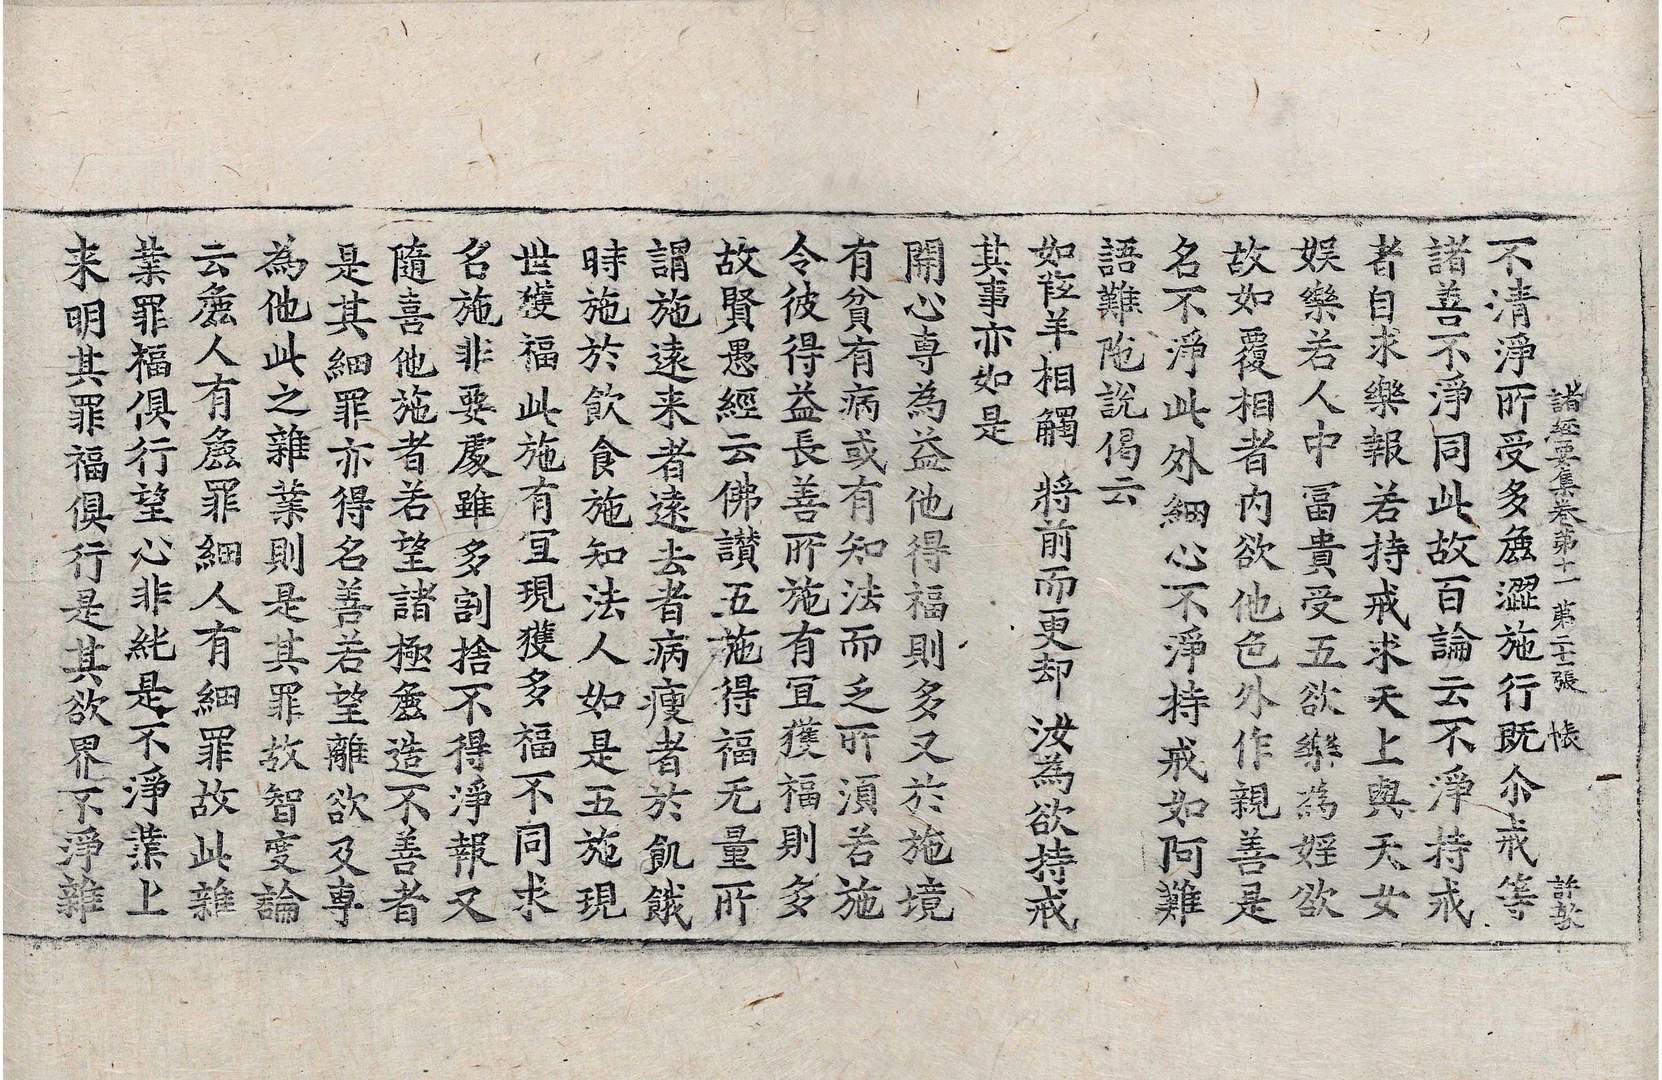 諸經要集卷第十一 第二十張 帳 許敦
不清淨所受多麁澀施行既尒戒等
諸善不淨同此故百論云不淨持戒
者自求樂報若持戒求天上與天女
娛樂若人中冨貴受五欲樂為婬欲
故如覆相者內欲他色外作親善是
名不淨此外細心不淨持戒如阿難
語難陁說偈云
如羝羊相觸 將前而更却 汝為欲持戒
其事亦如是
開心専為益他得福則多又於施境
有貧有病或有知法而乏所湏若施
令彼得益長善所施有冝獲福則多
故賢愚經云佛讃五施得福无量所
謂施逺来者逺去者病瘦者於飢餓
時施於飲食施知法人如是五施現
世獲福此施有冝現獲多福不同求
名施非要處雖多割捨不得淨報又
隨喜他施者若望諸極麁造不善者
是其細罪亦得名善若望離欲及専
為他此之雜業則是其罪故智度論
云麁人有麁罪細人有細罪故此雜
業罪福俱行望心非純是不淨業上
来明其罪福俱行是其欲界不淨雜